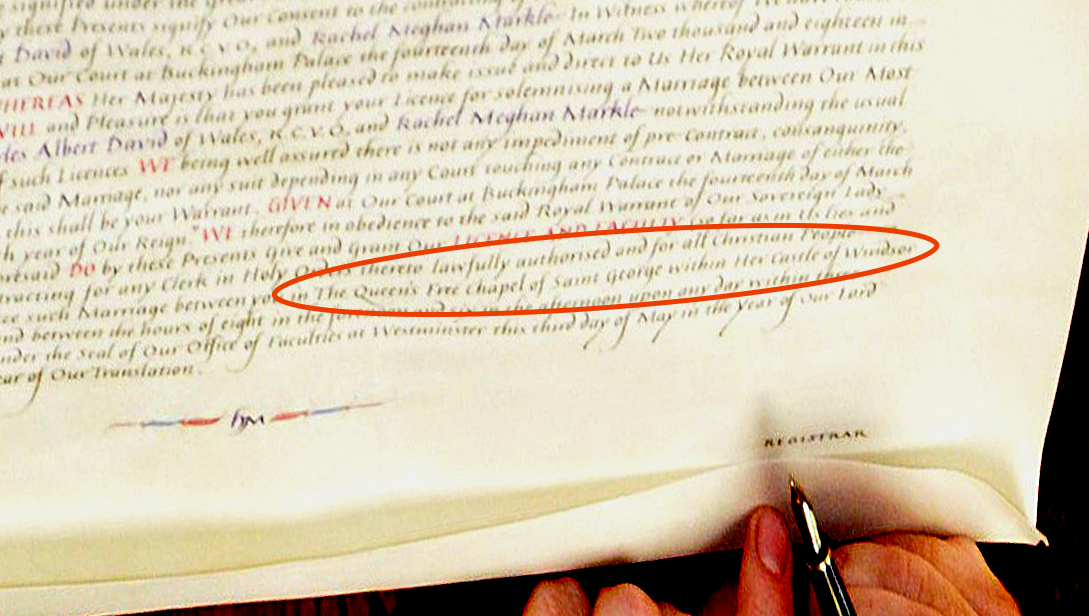 signified under the
these Presents signify Our Consent to the contracting of
David of Wales, K.C.V.O, and Rachel Meghan Markle In Witness whereof
at Our Court at Buckingham Palace the fourteenth day of March Two thousand and eighteen in
WHEREAS Her Majesty has been pleased to make issue and direct to Us Her Royal Warrant in this
WILL and Pleasure is that you grant your Licence for solemnising a Marriage between Our Most
Albert David of Wales, K.C.V.O, and Rachel Meghan Markle notwithstanding the usual
such Licences WE being well assured there is not any impediment of pre-contract, consanguinity,
said Marriage, nor any suit depending in any Court touching any Contract or Marriage of either the
this shall be your Warrant, GIVEN at Our Court at Buckingham Palace the fourteenth day of March
year of Our Reign." WE therefore in obedience to the said Royal Warrant of Our Sovereign Lady
DO by these Presents Give and Grant Our LICENCE AND FACULTY so far as in Us lies and
for any Clerk in Holy Orders thereto lawfully authorised and for all Christian People
such Marriage between you in The Queen's Free Chapel of Saint George within Her Castle of Windsor
between the hours of eight in the forenoon and six in the afternoon upon any day within three
under the Seal of Our Office of Faculties at Westminster this third day of May in the year of Our Lord
of Our Translation.
HM
REGISTRAR